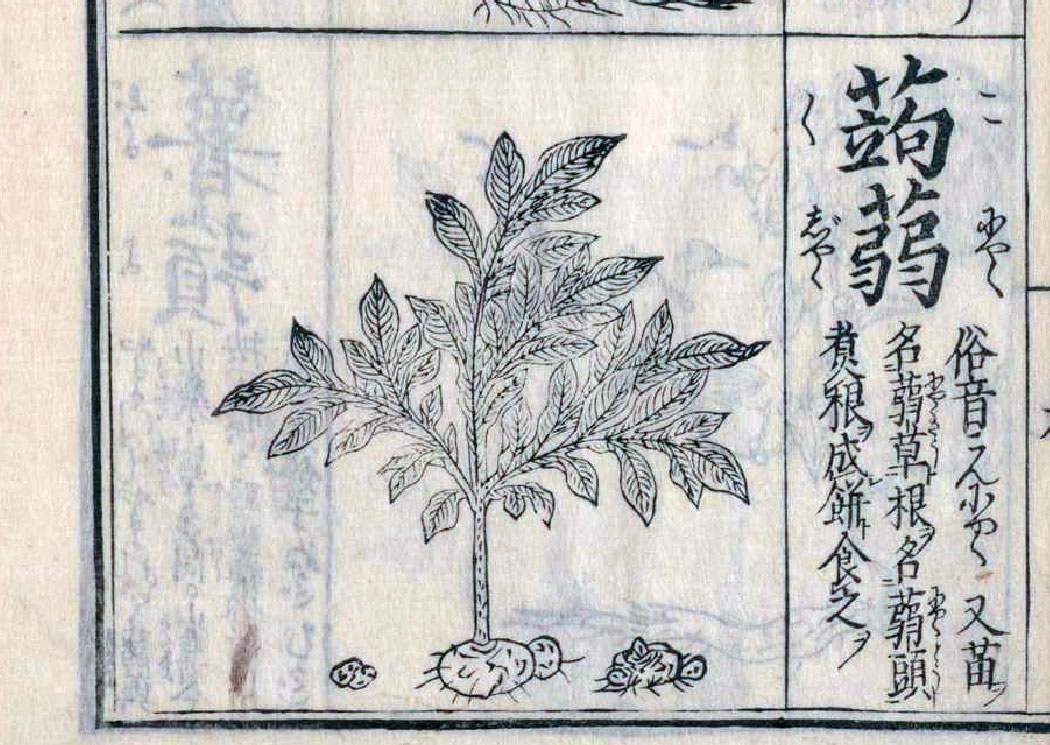 こ にやく
蒟蒻
く じやく
俗音こんにやく 又苗ヲ
名蒻草根ヲ名蒻頭
煑根ヲ成餅ト食之ヲ